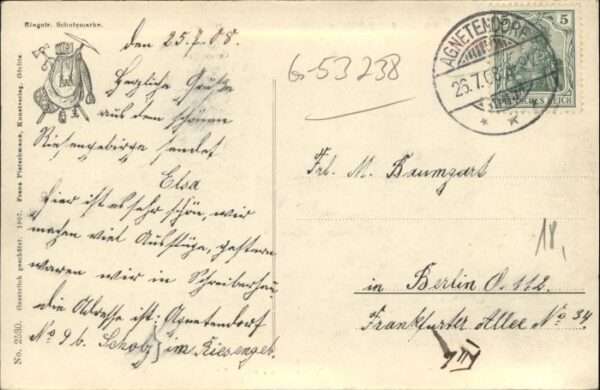 Eingetr. Schutzmarke.
No. 2530. Gesetzlich geschützt. 1907. Franz Pietschmann, Kunstverlag, Görlitz
den 25.7.08.
Herzliche Grüße
aus dem schönen
Riesengebirge sendet
Elsa
Hier ist es sehr schön, wir
machen viel Ausflüge, gestern
waren wir in Schreiberhau
die Adresse ist: Agnetendorf
No 9 b. Scholz im Riesengeb.
G-53238
AGNETENDORF
26.7.08
5
DEUTSCHES REICH
Frl. M. Baumgart
18,
in Berlin O. 112.
Frankfurter Allee No 34